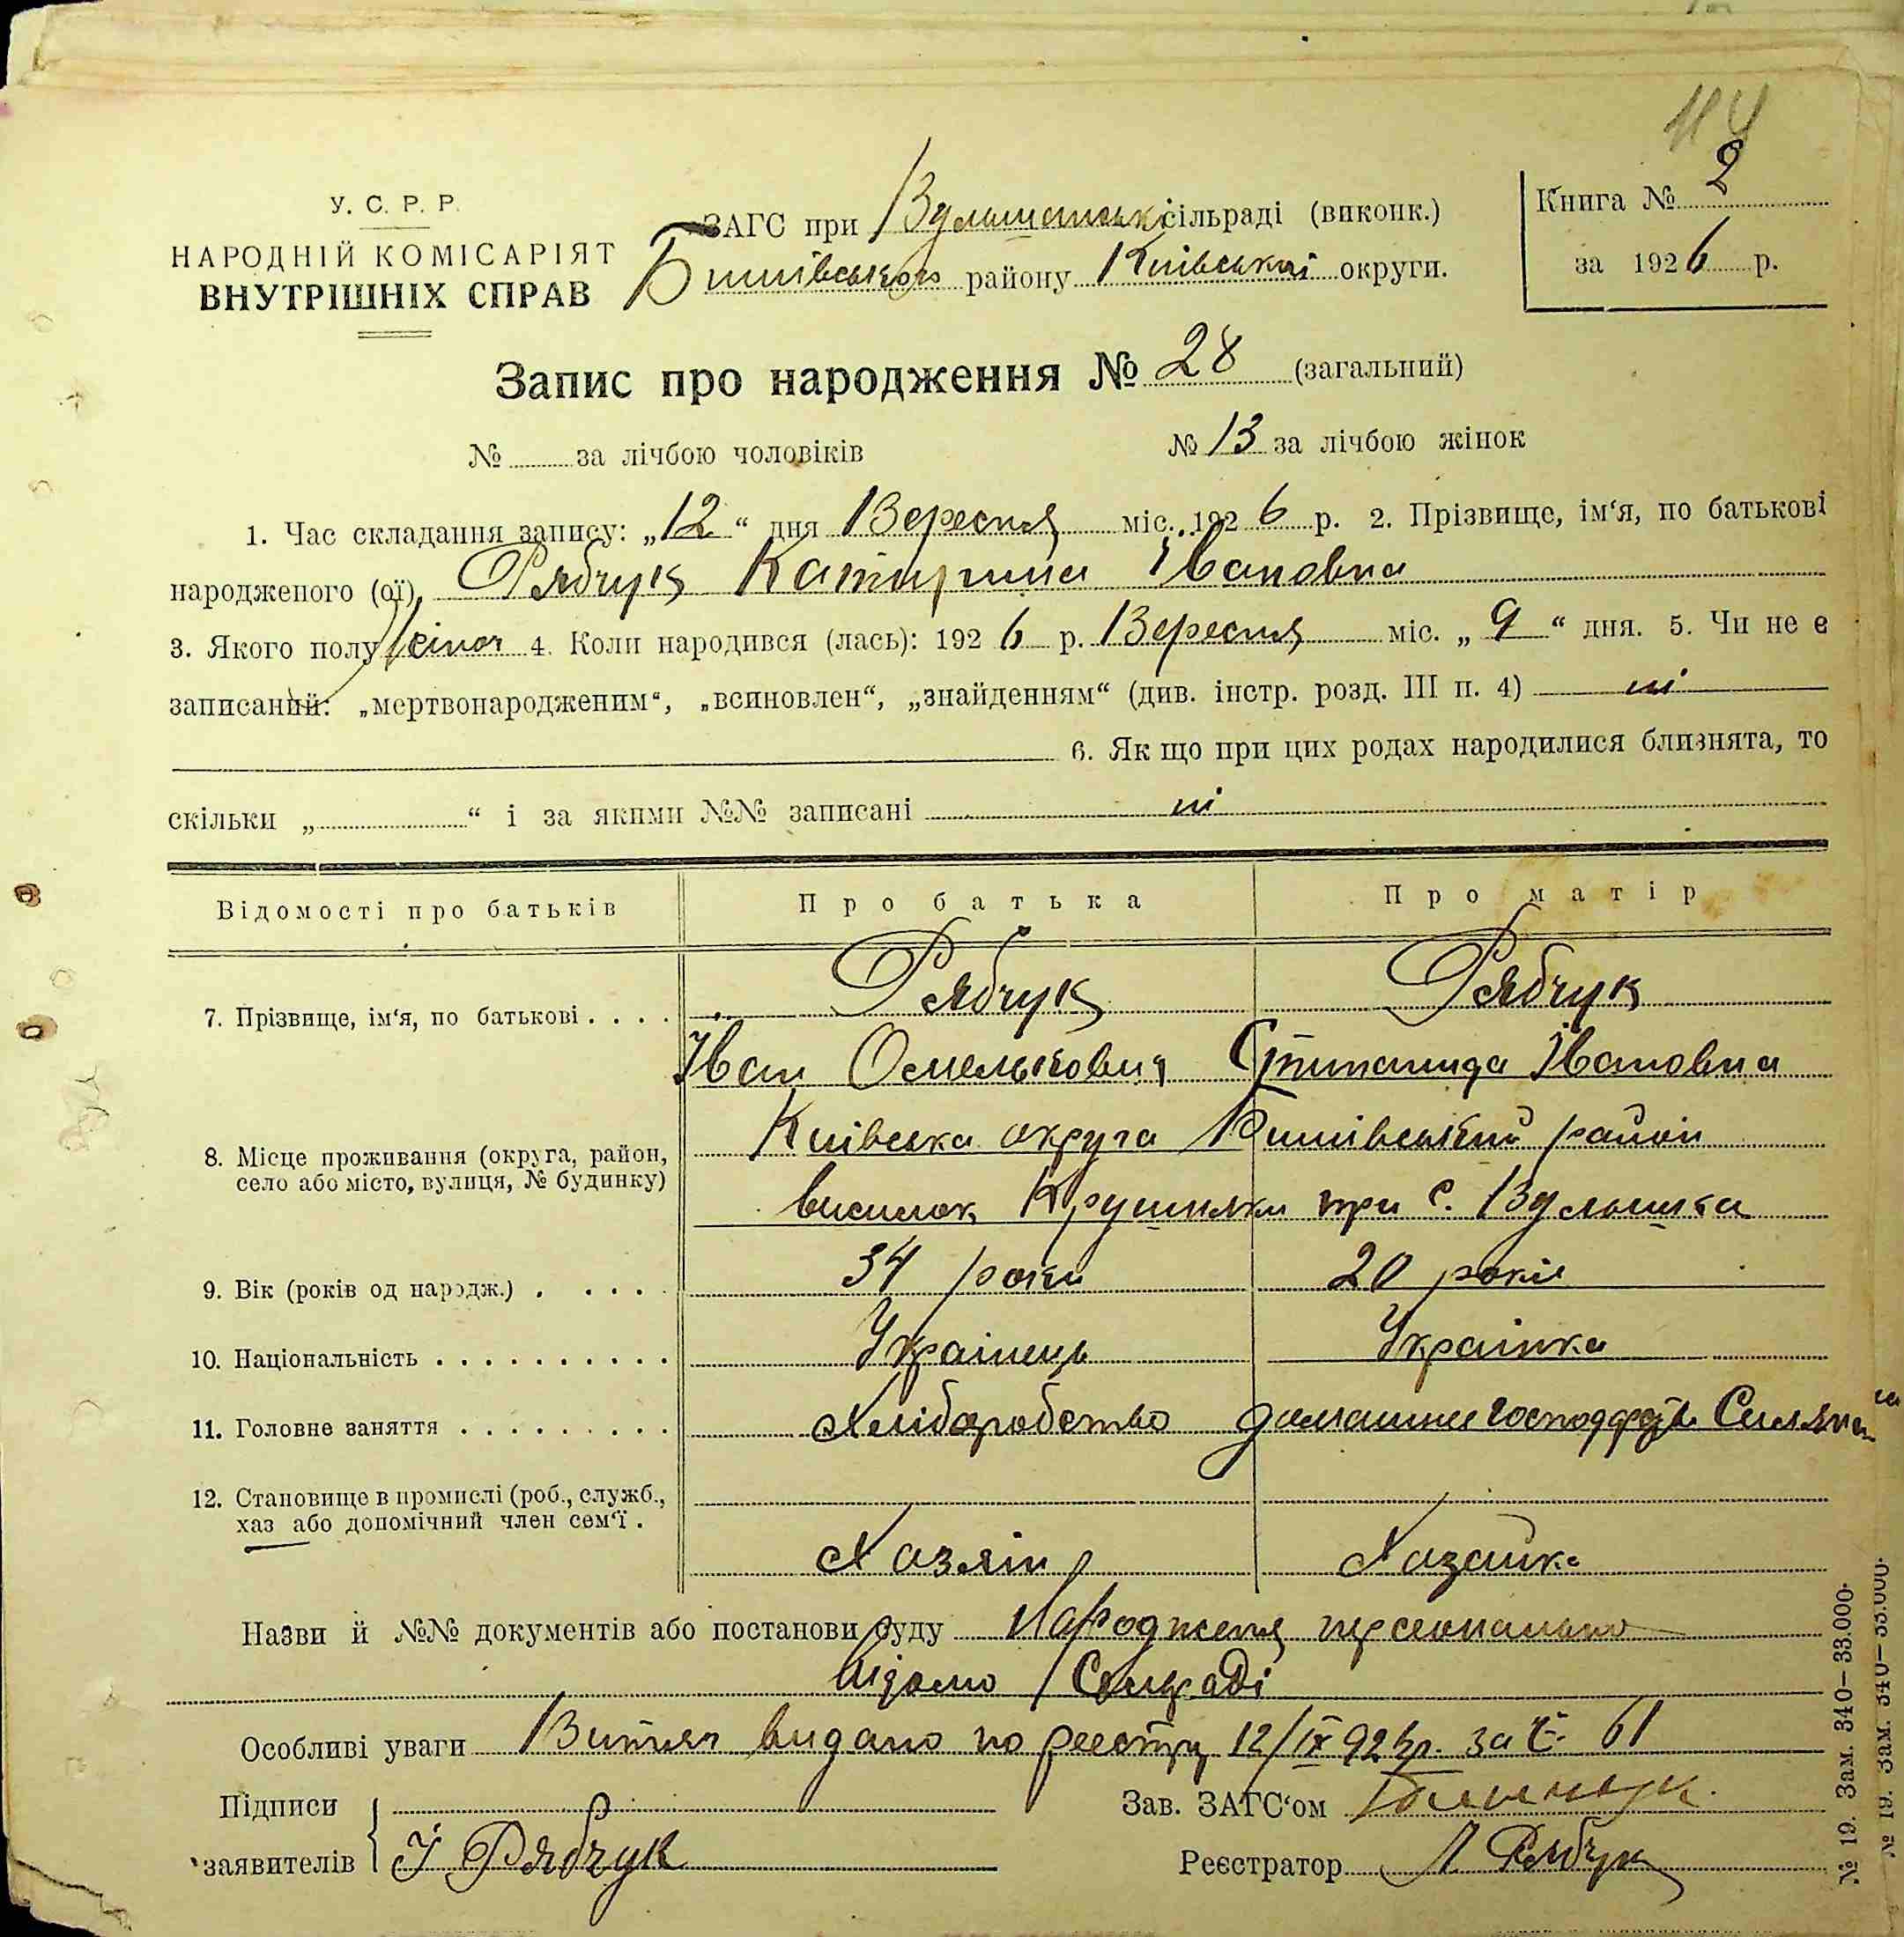 114
У. С. Р. Р.
НАРОДНІЙ КОМІСАРІЯТ
ВНУТРІШНІХ СПРАВ
ЗАГС при Вульшанській сільраді (виконк.)
Бишівського району Київської округи.
Книга № 2
за 1926 р.
Запис про народження № 28 (загальний)
№ за лічбою чоловіків № 13 за лічбою жінок
1. Час складання запису: „12“ дня Вересня міс. 1926 р. 2. Прізвище, ім‘я, по батькові
народженого (ої) Рябчук Катирина Івановна
3. Якого полу жіноч 4. Коли народився (лась): 1926 р. Вересня міс. „9“ дня. 5. Чи не є
записаний: „мертвонародженим“, „всиновлен“, „знайденням“ (див. інстр. розд. III п. 4) ні
6. Як що при цих родах народилися близнята, то
скільки „ “ і за якими №№ записані ні
Відомості про батьків Про батька Про матір
7. Прізвище, ім‘я, по батькові . . . . Рябчук Рябчук
Іван Омелькович Івановна
8. Місце проживання (округа, район, село або місто, вулиця, № будинку) Київська округа Бишівський район
висилок при с. Вульшка
9. Вік (років од народж.) . . . . . 34 роки 20 років
10. Національність . . . . . . . . . . . Українець Українка
11. Головне заняття . . . . . . . . . Хліборобство домашнє
12. Становище в промислі (роб., служб., хаз або допомічний член сем‘ї .
Хазяїн Хазяйка
Назви й №№ документів або постанови суду Народженя персонально
відомо Сільраді
Особливі уваги Витяг видано по реєстру 12/IX 926р. за №. 61
Підписи Зав. ЗАГС‘ом
заявителів І Рябчук Реєстратор Л Рябчук
№ 19. Зам. 340—33.000.
№ 19. Зам. 340—33.000.